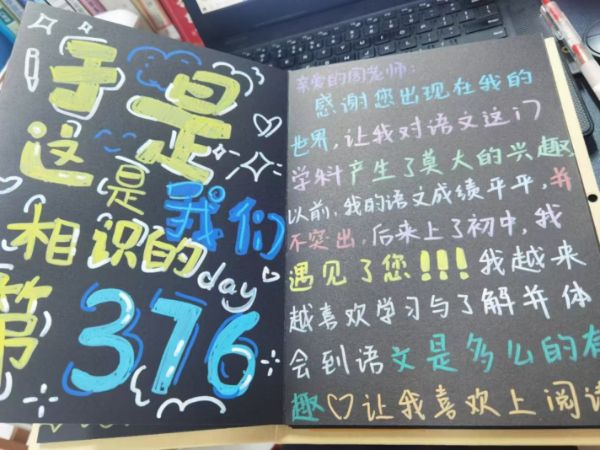 于是
这是我们
相识的
day
第376
亲爱的周老师:
感谢您出现在我的
世界,让我对语文这门
学科产生了莫大的兴趣,
以前,我的语文成绩平平,并
不突出,后来上了初中,我
遇见了您!!!我越来
越喜欢学习与了解并体
会到语文是多么的有
趣♡让我喜欢上阅读